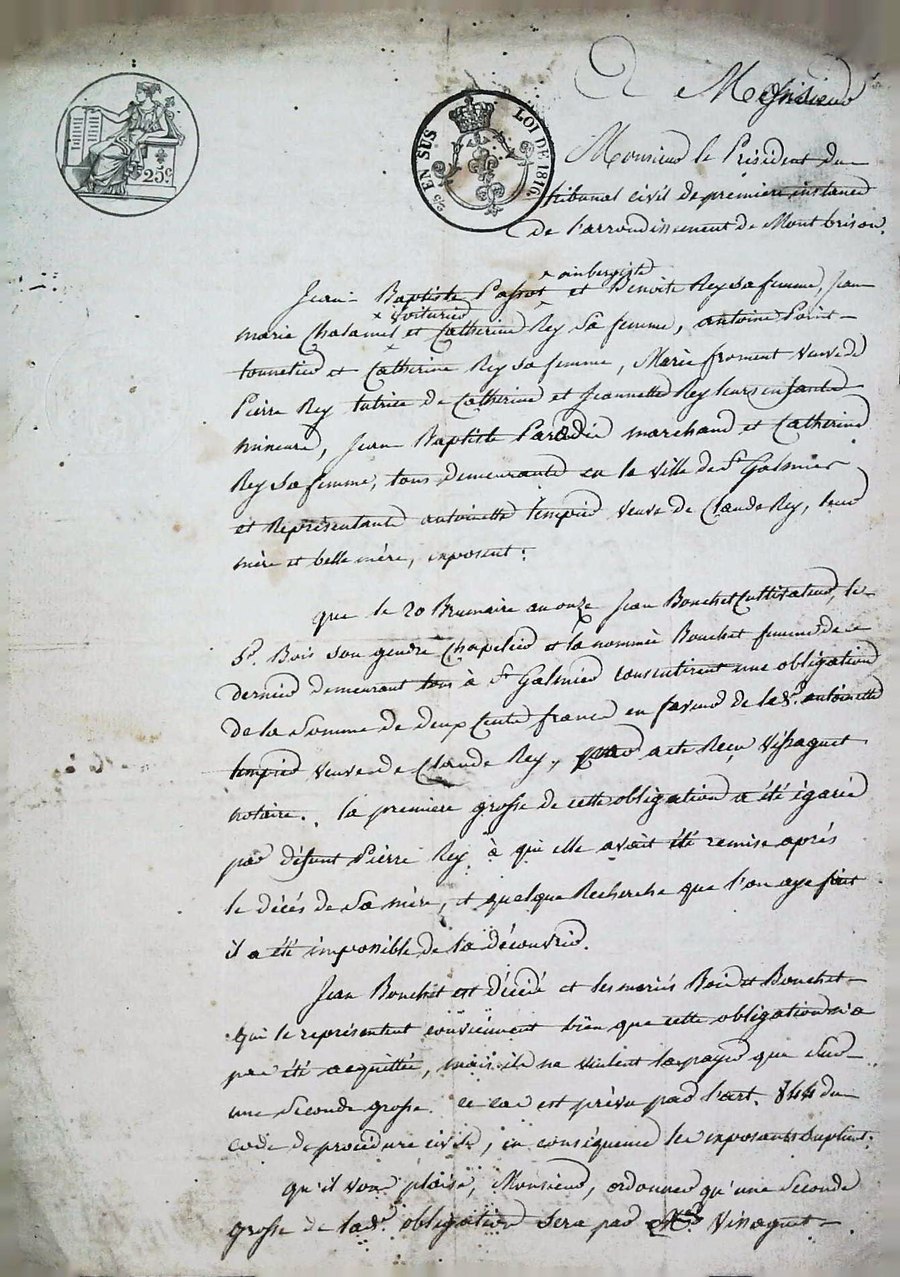 25c
2/5 EN SUS LOI DE 1816
A Monsieur
Monsieur le Président du
tribunal civil de premiere instance
de l'arrondissement de Montbrison.
Jean Baptiste Passot ^ aubergiste et Benoite Rey sa femme, Jean
marie Chalamel × voiturier et Catherine Rey sa femme, antoine Point
tourelier et Catherine Rey sa femme, Marie froment veuve de
Pierre Rey tutrice de Catherine et Jeannette Rey leurs enfants
mineurs, Jean Baptiste marchand et Catherine
Rey sa femme, tous demeurants en la ville de St Galmier
et Représentants antoinette tempier veuve de Claude Rey, leur
mère et belle mère, exposent:
que le 20 Brumaire an onze Jean Bouchet Cultivateur, le
Sr. Bois son gendre Chapelier et la nommée Bouchet femme de ce
dernier demeurant tous à St Galmier consentirent une obligation
de la somme de deux Cents francs en faveur de lad. antoinette
tempier veuve de Claude Rey, par acte Reçu Vissaguet
notaire. la première grosse de cette obligation a été égarée
par défunt Pierre Rey à qui elle avait été remise après
le décés de sa mère, et quelque Recherche que l'on aye fait
il a été impossible de la découvrir.
Jean Bouchet est décédé et les mariés Bois et Bouchet
qui le représentent conviennent bien que cette obligation n'a
pas été acquittée, mais ils ne veulent la payer que sur
une seconde grosse. ce cas est prévu par l'art. 844 du
code de procédure civile, en conséquence les exposants suplient:
qu'il vous plaise, Monsieur, ordonner qu'une seconde
grosse de lad. obligation sera par Me Vissaguet